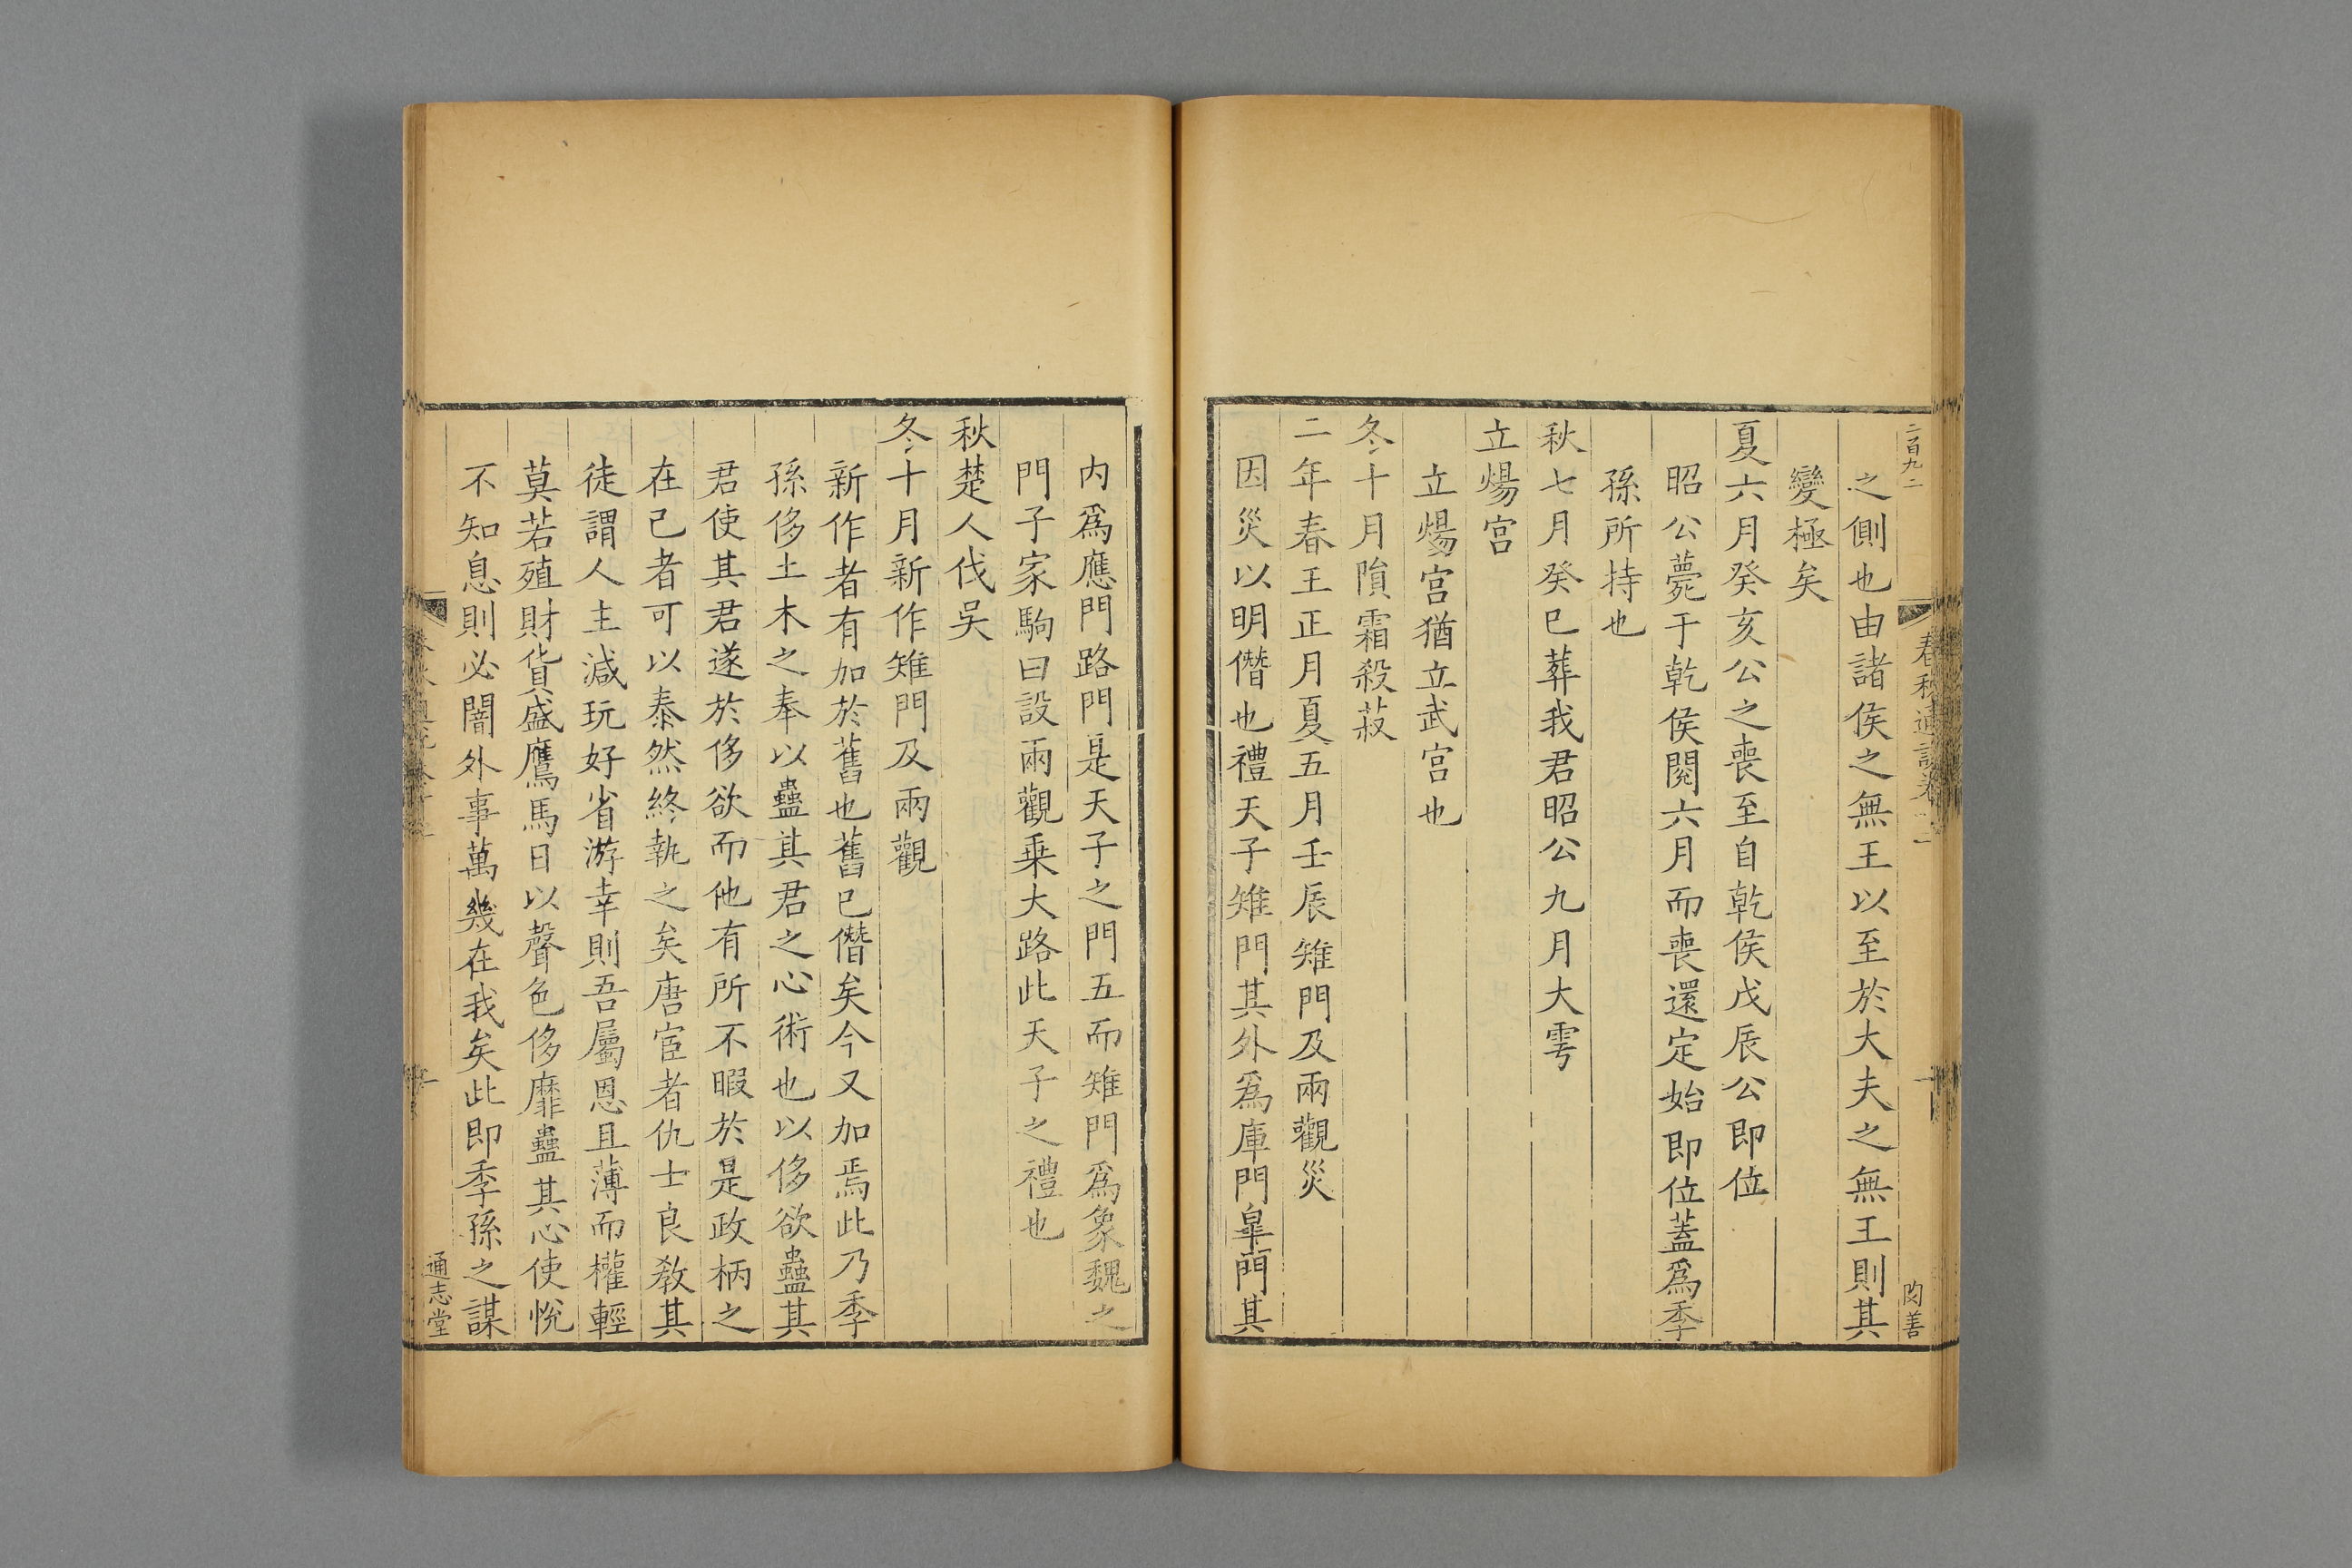 二百九二
之側也由諸侯之無王以至於大夫之無王則其
變極矣
夏六月癸亥公之喪至自乾侯戊辰公即位
昭公薨于乾侯閱六月而喪還定始即位蓋爲季
孫所持也
秋七月癸巳葬我君昭公九月大雩
立煬宮
立煬宮猶立武宮也
冬十月隕霜殺菽
二年春王正月夏五月壬辰雉門及兩觀災
因災以明僭也禮天子雉門其外爲庫門皐門其
內爲應門路門是天子之門五而雉門爲象魏之
門子家駒曰設兩觀乗大路此天子之禮也
秋楚人伐吳
冬十月新作雉門及兩觀
新作者有加於舊也舊已僭矣今又加焉此乃季
孫侈土木之奉以蠱其君之心術也以侈欲蠱其
君使其君遂於侈欲而他有所不暇於是政柄之
在己者可以泰然終執之矣唐宦者仇士良敎其
徒謂人主減玩好省游幸則吾屬恩且薄而權輕
莫若殖財貨盛鷹馬日以聲色侈靡蠱其心使悅
不知息則必闇外事萬幾在我矣此即季孫之謀
春秋通說卷
通志堂